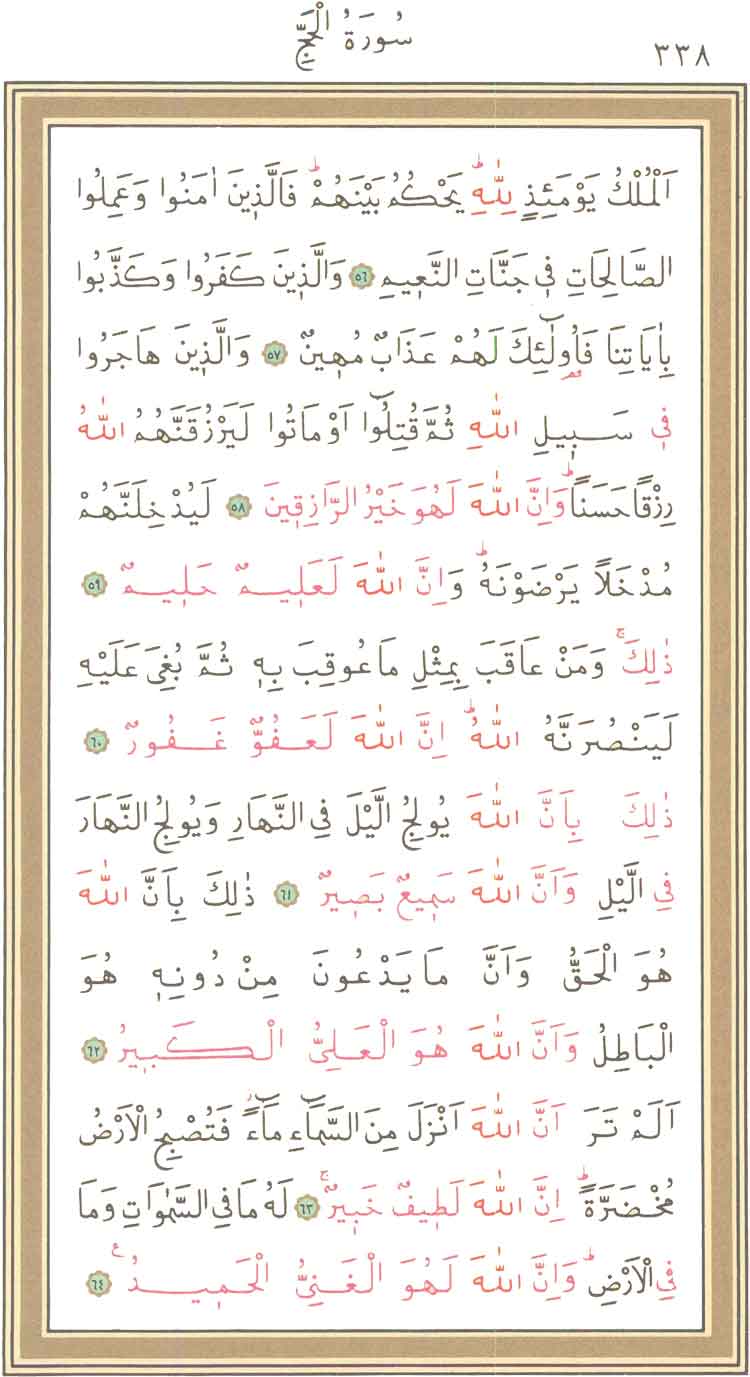 سُورَةُ الْحَجِّ
٣٣٨
اَلْمُلْكُ يَوْمَئِذٍ لِلّٰهِۜ يَحْكُمُ بَيْنَهُمْۜ فَالَّذ۪ينَ اٰمَنُوا وَعَمِلُوا
الصَّالِحَاتِ ف۪ي جَنَّاتِ النَّع۪يمِ ٥٦ وَالَّذ۪ينَ كَفَرُوا وَكَذَّبُوا
بِاٰيَاتِنَا فَاُو۬لٰٓئِكَ لَهُمْ عَذَابٌ مُه۪ينٌ ٥٧ وَالَّذ۪ينَ هَاجَرُوا
ف۪ي سَب۪يلِ اللّٰهِ ثُمَّ قُتِلُٓوا اَوْ مَاتُوا لَيَرْزُقَنَّهُمُ اللّٰهُ
رِزْقًا حَسَنًاۜ وَاِنَّ اللّٰهَ لَهُوَ خَيْرُ الرَّازِق۪ينَ ٥٨ لَيُدْخِلَنَّهُمْ
مُدْخَلًا يَرْضَوْنَهُۜ وَاِنَّ اللّٰهَ لَعَل۪يمٌ حَل۪يمٌ ٥٩
ذٰلِكَۚ وَمَنْ عَاقَبَ بِمِثْلِ مَا عُوقِبَ بِه۪ ثُمَّ بُغِيَ عَلَيْهِ
لَيَنْصُرَنَّهُ اللّٰهُۜ اِنَّ اللّٰهَ لَعَفُوٌّ غَفُورٌ ٦٠
ذٰلِكَ بِاَنَّ اللّٰهَ يُولِجُ الَّيْلَ فِي النَّهَارِ وَيُولِجُ النَّهَارَ
فِي الَّيْلِ وَاَنَّ اللّٰهَ سَم۪يعٌ بَص۪يرٌ ٦١ ذٰلِكَ بِاَنَّ اللّٰهَ
هُوَ الْحَقُّ وَاَنَّ مَا يَدْعُونَ مِنْ دُونِه۪ هُوَ
الْبَاطِلُ وَاَنَّ اللّٰهَ هُوَ الْعَلِيُّ الْكَب۪يرُ ٦٢
اَلَمْ تَرَ اَنَّ اللّٰهَ اَنْزَلَ مِنَ السَّمَٓاءِ مَٓاءًۘ فَتُصْبِحُ الْاَرْضُ
مُخْضَرَّةًۜ اِنَّ اللّٰهَ لَط۪يفٌ خَب۪يرٌۚ ٦٣ لَهُ مَا فِي السَّمٰوَاتِ وَمَا
فِي الْاَرْضِۜ وَاِنَّ اللّٰهَ لَهُوَ الْغَنِيُّ الْحَم۪يدُ۟ ٦٤